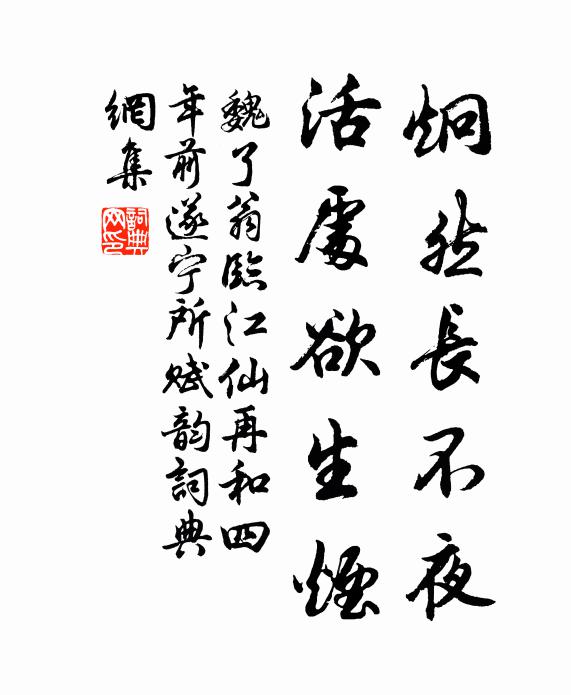 炯然長不夜
活處欲生煙
魏了翁臨江仙再和四
年前遂宁所赋韵詞典
網集
詞典网印